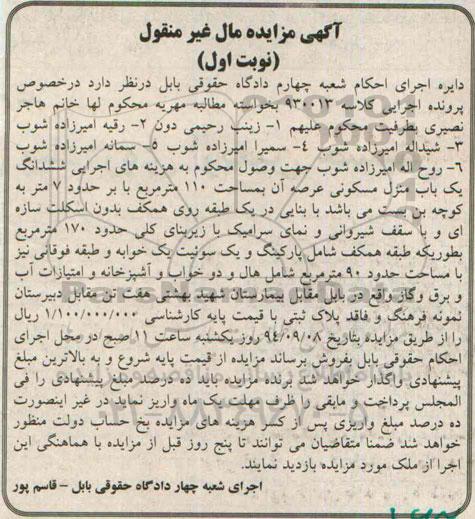 آگهی مزایده مال غیر منقول
(نوبت اول)
دایره اجرای احکام شعبه چهارم دادگاه حقوقی بابل درنظر دارد درخصوص
پرونده اجرایی کلاسه ۹۳۰۰۱۳ بخواسته مطالبه مهریه محکوم لها خانم هاجر
نصیری بطرفیت محکوم علیهم ۱- زینب رحیمی دون ۲- رقیه امیرزاده شوب
۳- شیداله امیرزاده شوب ۴- سمیرا امیرزاده شوب ۵- سمانه امیرزاده شوب
۶- روح اله امیرزاده شوب جهت وصول محکوم به هزینه های اجرایی ششدانگ
یک باب منزل مسکونی عرصه آن بمساحت ۱۱۰ مترمربع با بر حدود ۷ متر به
کوچه بن بست می باشد با بنایی در یک طبقه روی همکف بدون اسکلت سازه
ای و با سقف شیروانی و نمای سرامیک با زیربنای کلی حدود ۱۷۰ مترمربع
بطوریکه طبقه همکف شامل پارکینگ و یک سوئیت یک خوابه و طبقه فوقانی نیز
با مساحت حدود ۹۰ مترمربع شامل هال و دو خواب و آشپزخانه و امتیازات آب
و برق وگاز واقع در بابل مقابل بیمارستان شهید بهشتی هفت تن مقابل دبیرستان
نمونه فرهنگ و فاقد پلاک ثبتی با قیمت پایه کارشناسی ۱/۱۰۰/۰۰۰/۰۰۰ ریال
را از طریق مزایده بتاریخ ۹۴/۰۹/۰۸ روز یکشنبه ساعت ۱۱ صبح در محل اجرای
احکام حقوقی بابل بفروش برساند مزایده از قیمت پایه شروع و به بالاترین مبلغ
پیشنهادی واگذار خواهد شد برنده مزایده باید ده درصد مبلغ پیشنهادی را فی
المجلس پرداخت و مابقی را ظرف مهلت یک ماه واریز نماید در غیر اینصورت
ده درصد مبلغ واریزی پس از کسر هزینه های مزایده بخ حساب دولت منظور
خواهد شد ضمنا متقاضیان می توانند تا پنج روز قبل از مزایده با هماهنگی این
اجرا از ملک مورد مزایده بازدید نمایند.
اجرای شعبه چهار دادگاه حقوقی بابل - قاسم پور